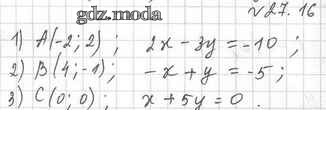 gdz.moda
№27.16
1) A(-2; 2) ; 2x - 3y = -10 ;
2) B(4; -1) ; -x + y = -5 ;
3) C(0; 0) ; x + 5y = 0 .